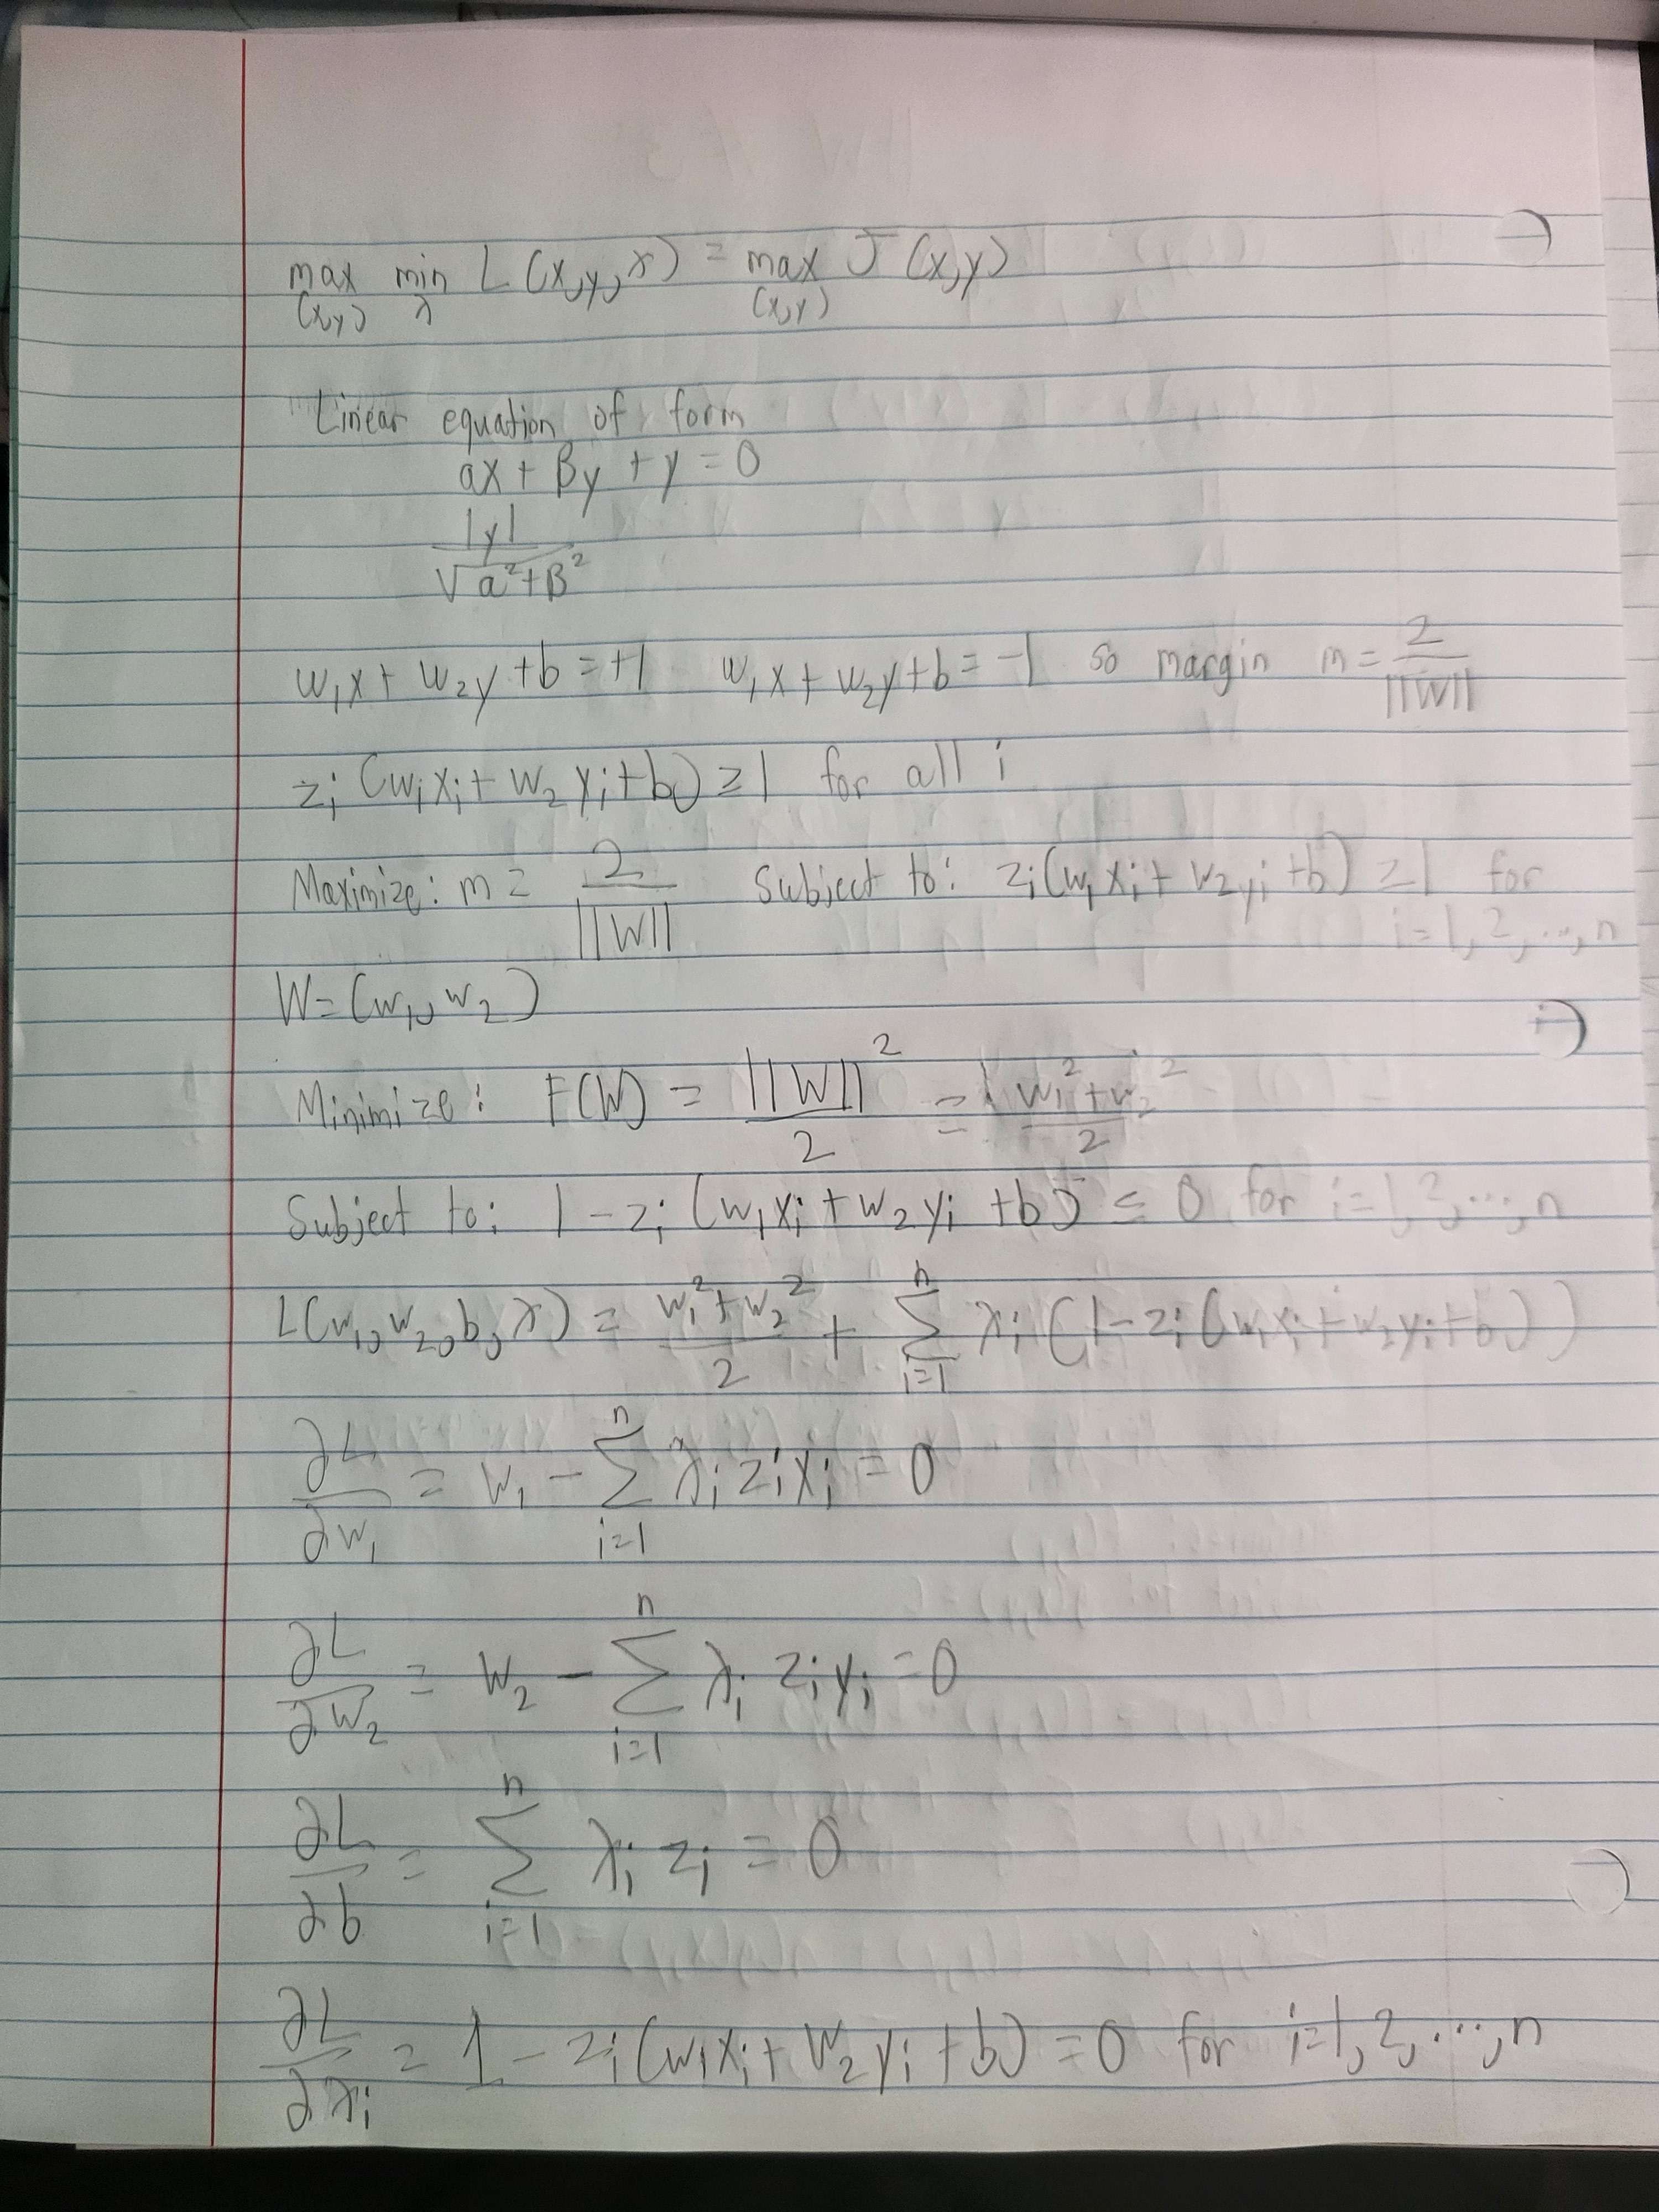 max min L(x,y,λ) = max J(x,y)
(x,y) λ (x,y)
Linear equation of form
ax + βy + γ = 0
|γ| / √(a² + β²)
w₁x + w₂y + b = +1 w₁x + w₂y + b = -1 so margin m = 2/||W||
zᵢ(wᵢxᵢ + w₂yᵢ + b) ≥ 1 for all i
Maximize: m = 2/||W|| Subject to: zᵢ(w₁xᵢ + w₂yᵢ + b) ≥ 1 for
i = 1, 2, ..., n
W = (w₁, w₂)
Minimize: F(W) = ||W||²/2 = (w₁² + w₂²)/2
Subject to: 1 - zᵢ(w₁xᵢ + w₂yᵢ + b) ≤ 0 for i = 1, 2, ..., n
L(w₁, w₂, b, λ) = (w₁² + w₂²)/2 + Σᵢ₌₁ⁿ λᵢ(1 - zᵢ(w₁xᵢ + w₂yᵢ + b))
∂L/∂w₁ = w₁ - Σᵢ₌₁ⁿ λᵢzᵢxᵢ = 0
∂L/∂w₂ = w₂ - Σᵢ₌₁ⁿ λᵢzᵢyᵢ = 0
∂L/∂b = Σᵢ₌₁ⁿ λᵢzᵢ = 0
∂L/∂λᵢ = 1 - zᵢ(w₁xᵢ + w₂yᵢ + b) = 0 for i = 1, 2, ..., n